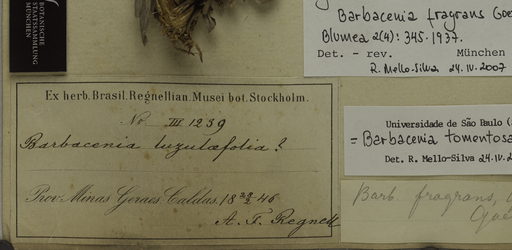 BOTANISCHE
STAATSSAMMLUNG
MÜNCHEN
Barbacenia fragrans Goe
Blumea 2(4): 345. 1937.
Det. - rev. München
R. Mello-Silva 24.IV.2007
Ex herb. Brasil. Regnellian. Musei bot. Stockholm.
No III 1239
Barbacenia luzulæfolia?
Prov. Minas Geraes. Caldas. 18 46
A. F. Regnell
Universidade de São Paulo (
= Barbacenia tomentosa
Det. R. Mello-Silva 24.IV.2
Barb. fragrans,
Goe